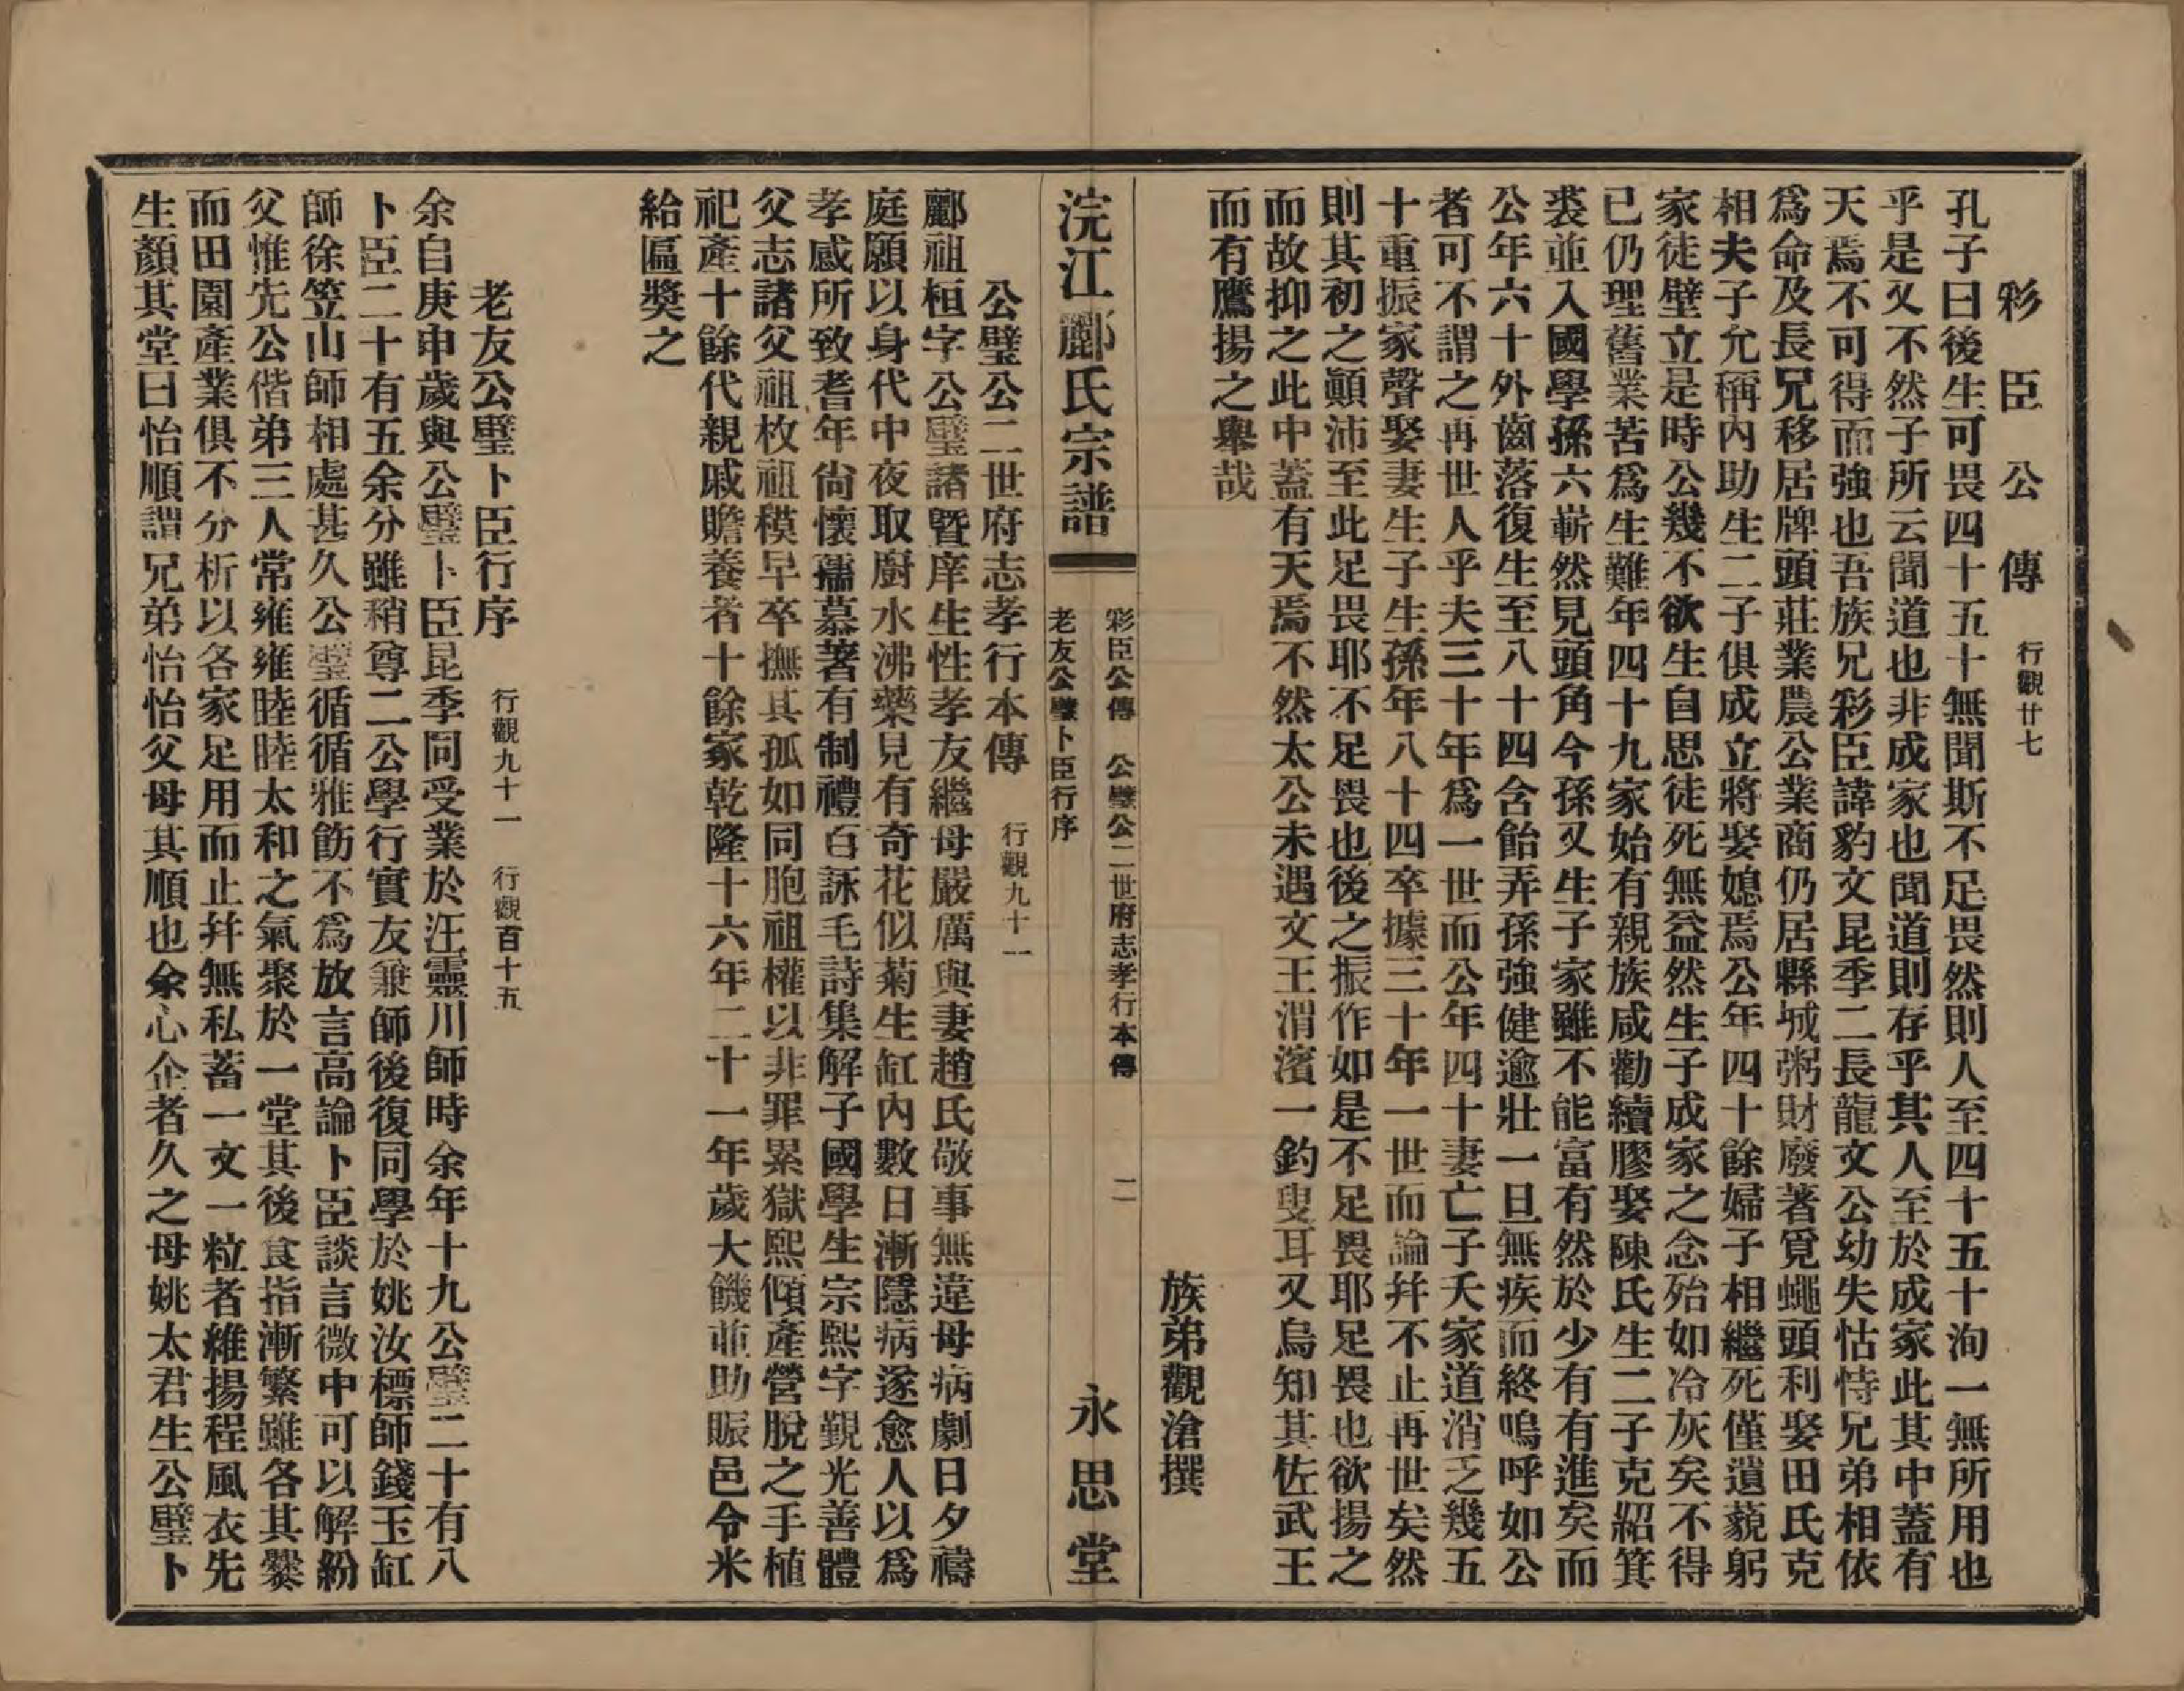 彩臣公傳 行觀廿七
孔子曰後生可畏四十五十無聞斯不足畏然則人至四十五十洵一無所用也
乎是又不然子所云聞道也非成家也聞道則存乎其人至於成家此其中蓋有
天焉不可得而強也吾族兄彩臣諱豹文昆季二長龍文公幼失怙恃兄弟相依
爲命及長兄移居牌頭莊業農公業商仍居縣城粥財廢著覓蠅頭利娶田氏克
相夫子允稱內助生二子俱成立將娶媳焉公年四十餘婦子相繼死僅遺藐躬
家徒壁立是時公幾不欲生自思徒死無益然生子成家之念殆如冷灰矣不得
已仍理舊業苦爲生難年四十九家始有親族咸勸續膠娶陳氏生二子克紹箕
裘並入國學孫六嶄然見頭角今孫又生子家雖不能富有然於少有有進矣而
公年六十外齒落復生至八十四含飴弄孫強健逾壯一旦無疾而終嗚呼如公
者可不謂之再世人乎夫三十年爲一世而公年四十妻亡子夭家道消乏幾五
十重振家聲娶妻生子生孫年八十四卒據三十年一世而論幷不止再世矣然
則其初之顚沛至此足畏耶不足畏也後之振作如是不足畏耶足畏也欲揚之
而故抑之此中蓋有天焉不然太公未遇文王渭濱一釣叟耳又烏知其佐武王
而有鷹揚之舉哉
族弟觀滄撰
浣江酈氏宗譜
彩臣公傳 公璧公二世府志孝行本傳
老友公璧卜臣行序
二
永思堂
公璧公二世府志孝行本傳 行觀九十一
酈祖桓字公璧諸暨庠生性孝友繼母嚴厲與妻趙氏敬事無違母病劇日夕禱
庭願以身代中夜取廚水沸藥見有奇花似菊生缸內數日漸隱病遂愈人以爲
孝感所致耆年尙懷孺慕著有制禮百詠毛詩集解子國學生宗熙字覲光善體
父志諸父祖枚祖稷早卒撫其孤如同胞祖權以非罪累獄熙傾產營脫之手植
祀產十餘代親戚贍養者十餘家乾隆十六年二十一年歲大饑並助賑邑令米
給匾獎之
老友公璧卜臣行序 行觀九十一 行觀百十五
余自庚申歲與公璧卜臣昆季同受業於汪靈川師時余年十九公璧二十有八
卜臣二十有五余分雖稍尊二公學行實友兼師後復同學於姚汝標師錢玉缸
師徐笠山師相處甚久公璧循循雅飭不爲放言高論卜臣談言微中可以解紛
父惟先公偕弟三人常雍雍睦睦太和之氣聚於一堂其後食指漸繁雖各其爨
而田園產業俱不分析以各家足用而止幷無私蓄一文一粒者維揚程風衣先
生顏其堂曰怡順謂兄弟怡怡父母其順也余心企者久之母姚太君生公璧卜